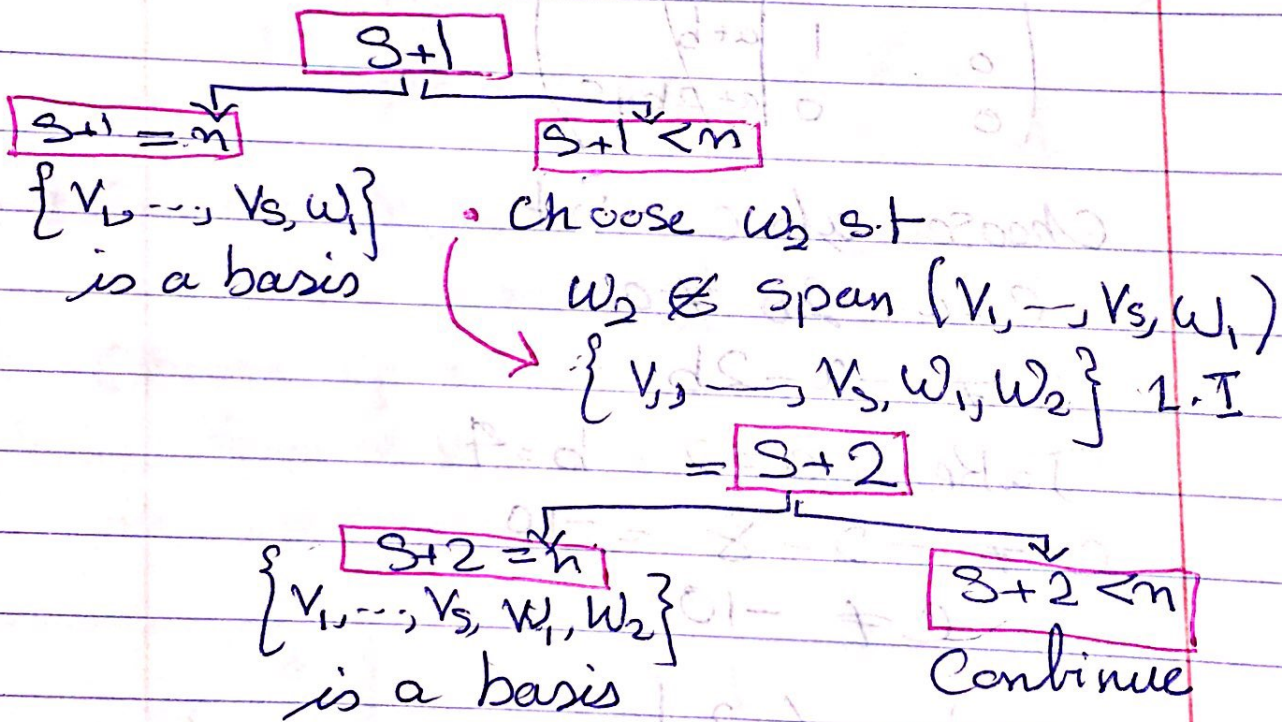 S+1
S+1 = n
S+1 < n
{V1, ..., Vs, w1}
is a basis
• choose w2 s.t
w2 ∉ span (V1, —, Vs, w1)
{V1, —, Vs, w1, w2} L.I
= S+2
S+2 = n
{V1, ..., Vs, w1, w2}
is a basis
S+2 < n
Continue